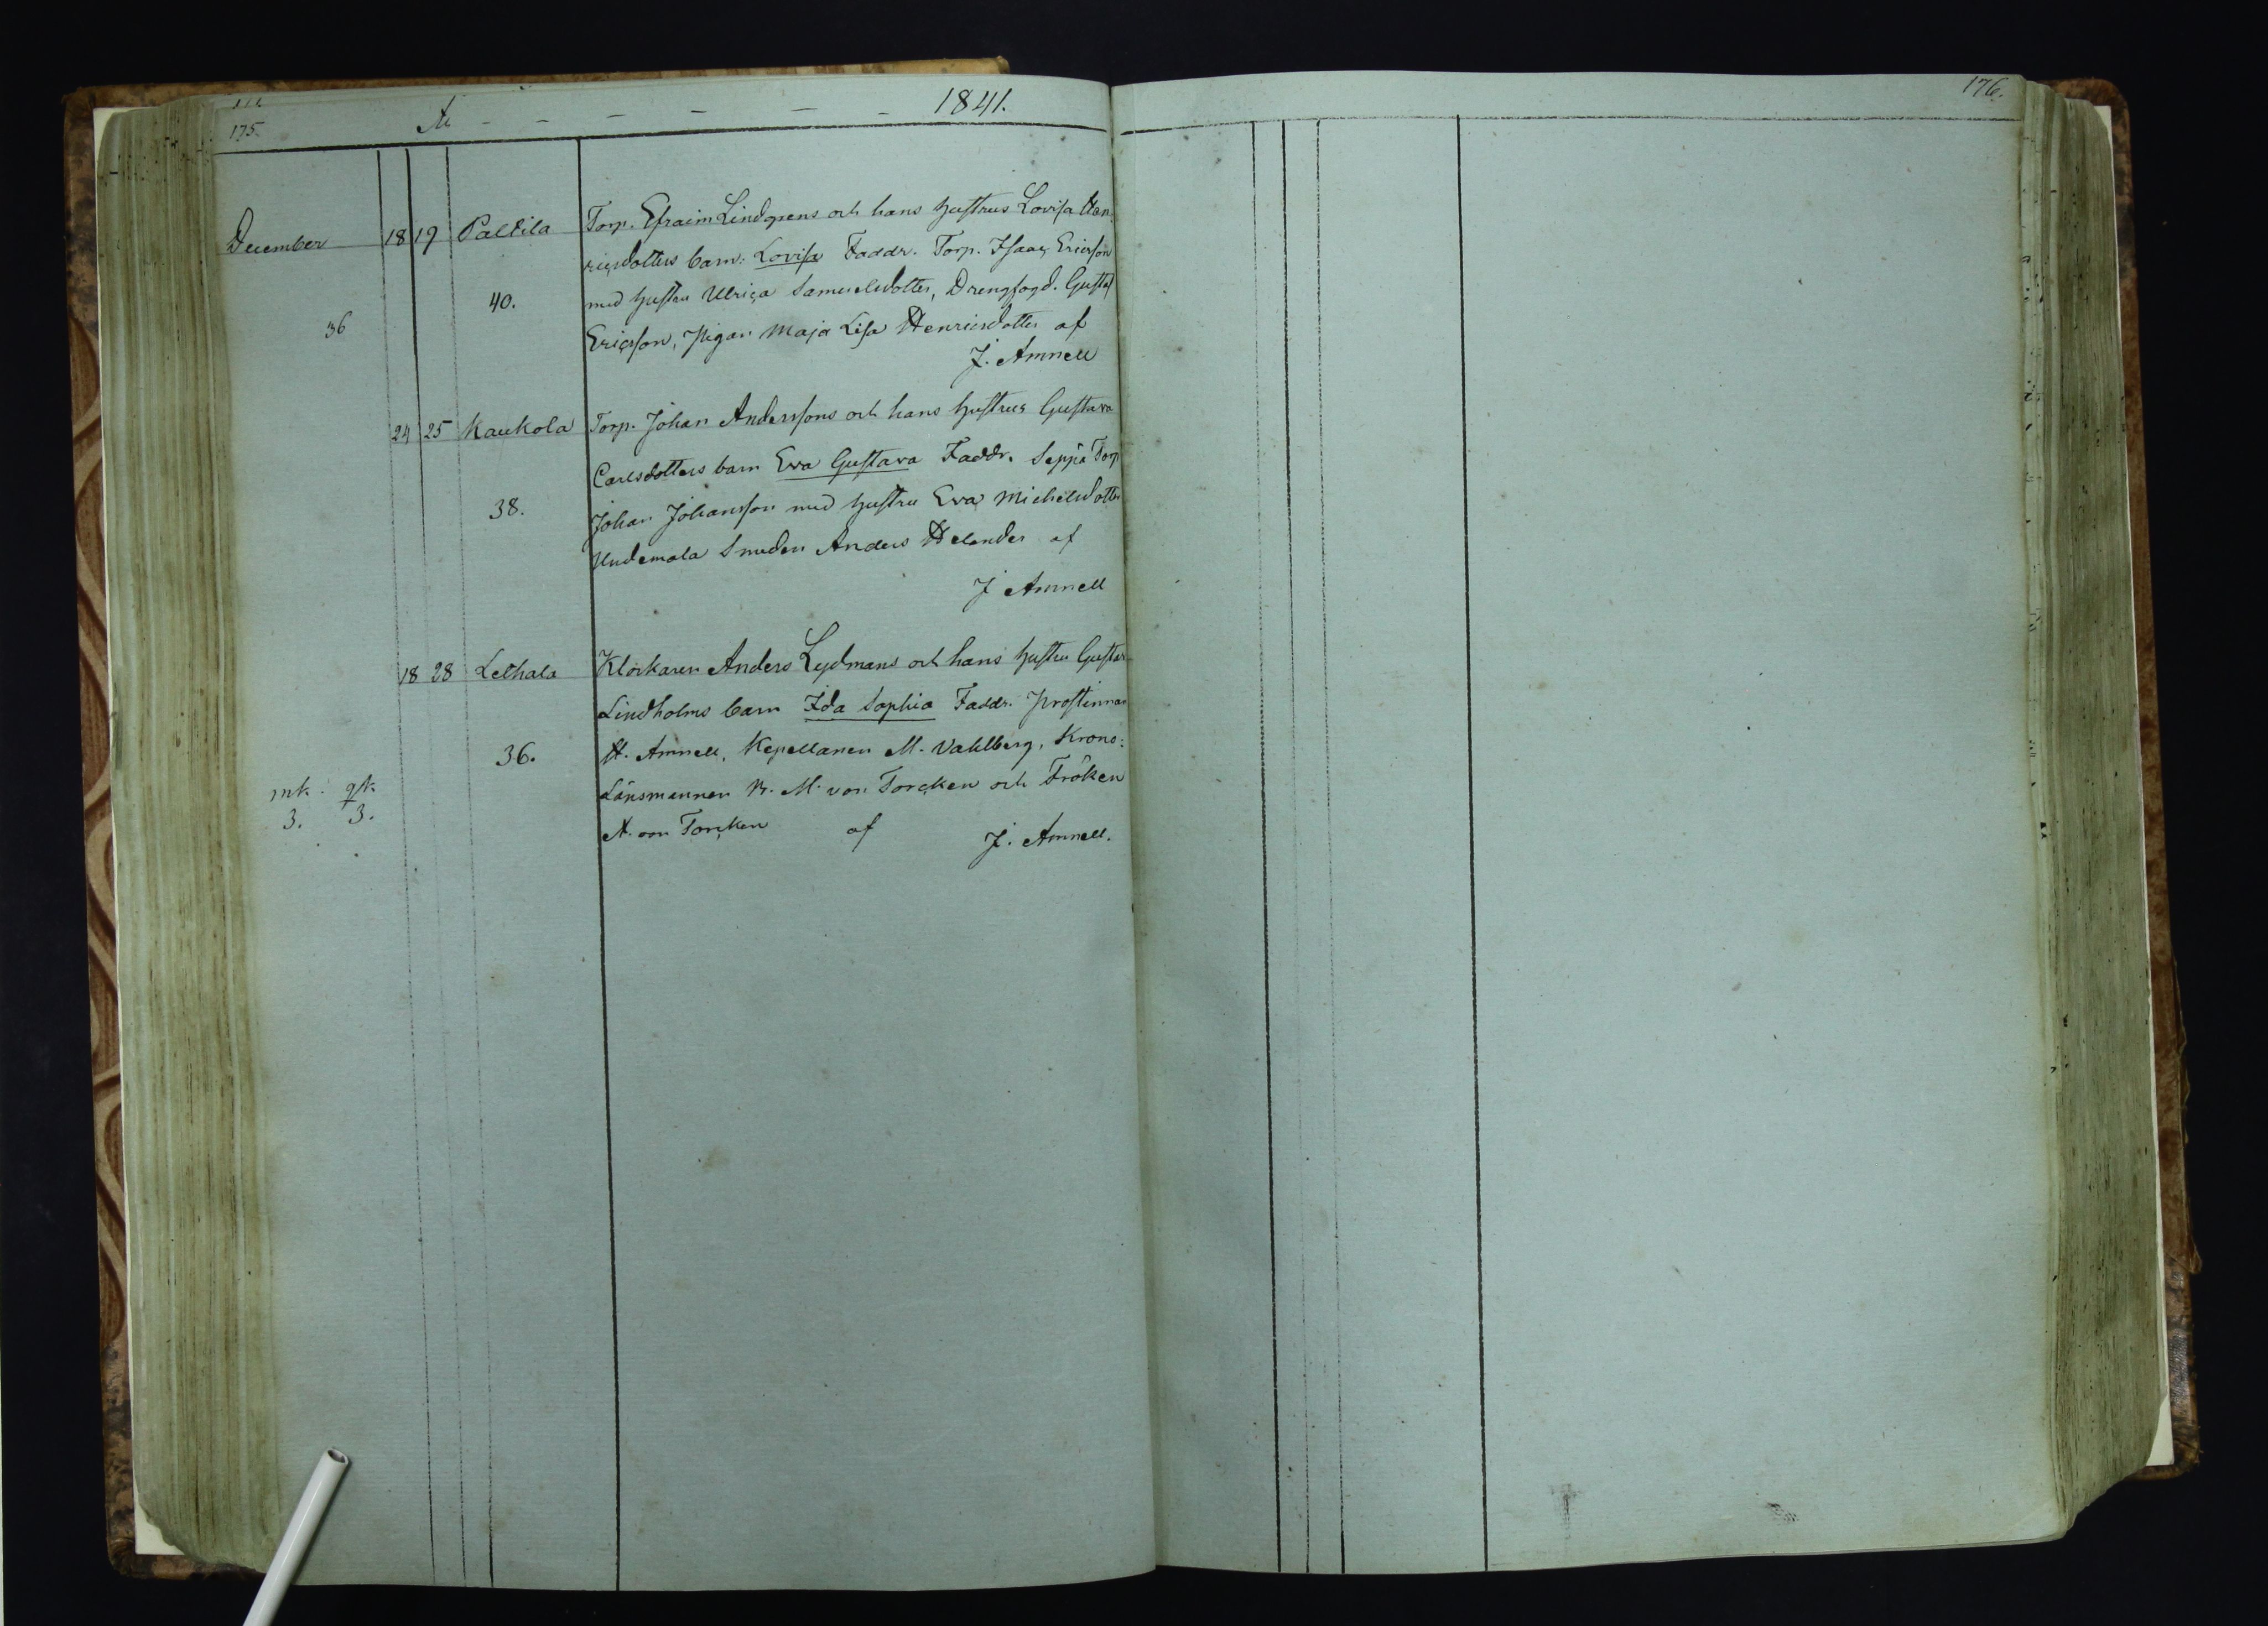 175.
År - - - - - 1841.
176.
December 18 19 Paltila Torp. Efraim Lindgrens och hans hustrus Lovisa Hen-
ricsdotters barn: Lovisa Faddr. Torp. Isaac Ericsson
40. med hustru Ulrica Samuelsdotter, Drengfogd. Gustaf
36 Ericsson, Pigan Maja Lisa Henricsdotter af
J. Amnell
24 25 Kaukola Torp. Johan Anderssons och hans hustrus Gustava
Carlsdotters barn Eva Gustava Faddr. Seppä Torp
38. Johan Johansson med hustru Eva Michelsdotter
Smeden Anders Helander af
J Amnell
18 28 Lethala Klockaren Anders Lydmans och hans hustru Gustav
Lindholms barn Ida Sophia Faddr. Prostinnan
36. H. Amnell, Kapellanen M. Vahlberg, Krono-
Länsmannen B. M. von Torcken och Fröken
A. von Torcken af J. Amnell.
mk. qk.
3. 3.